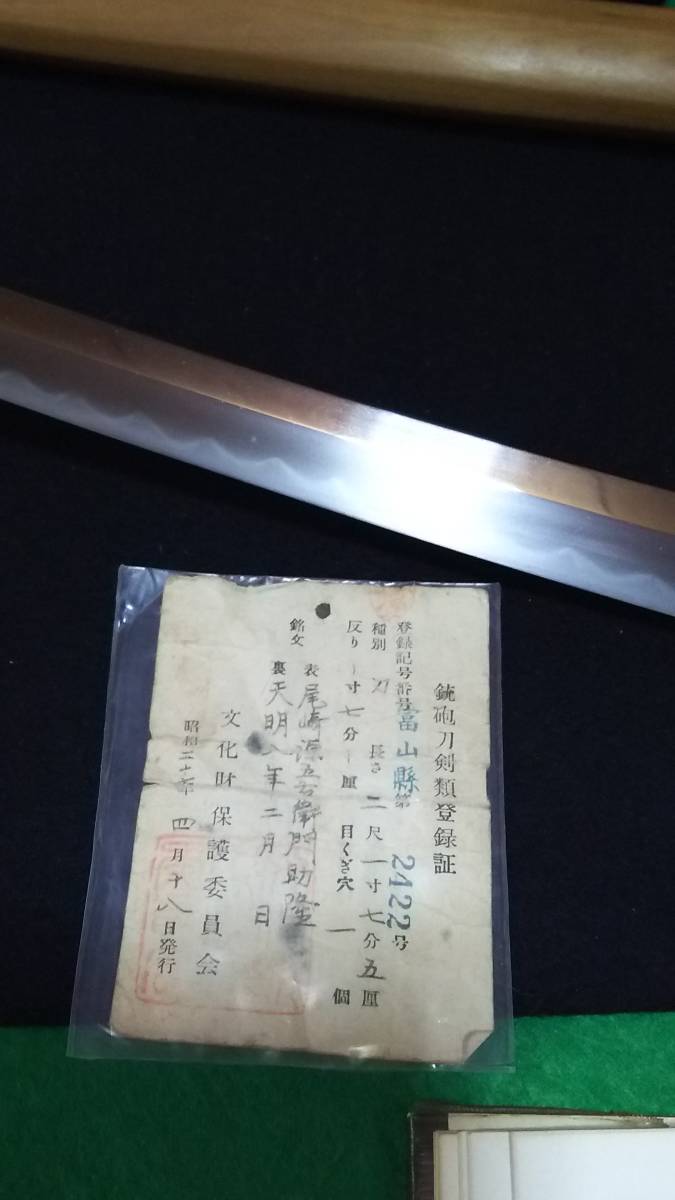 銃砲刀剣類登録証
登録記号番号富山縣第2422号
種別 刀 長さ 二尺一寸七分五厘
反り 一寸七分一厘 目くぎ穴 一 個
銘文 表 尾崎源五右衛門助隆
裏 天明八年二月 日
文化財保護委員会
四月十八日発行